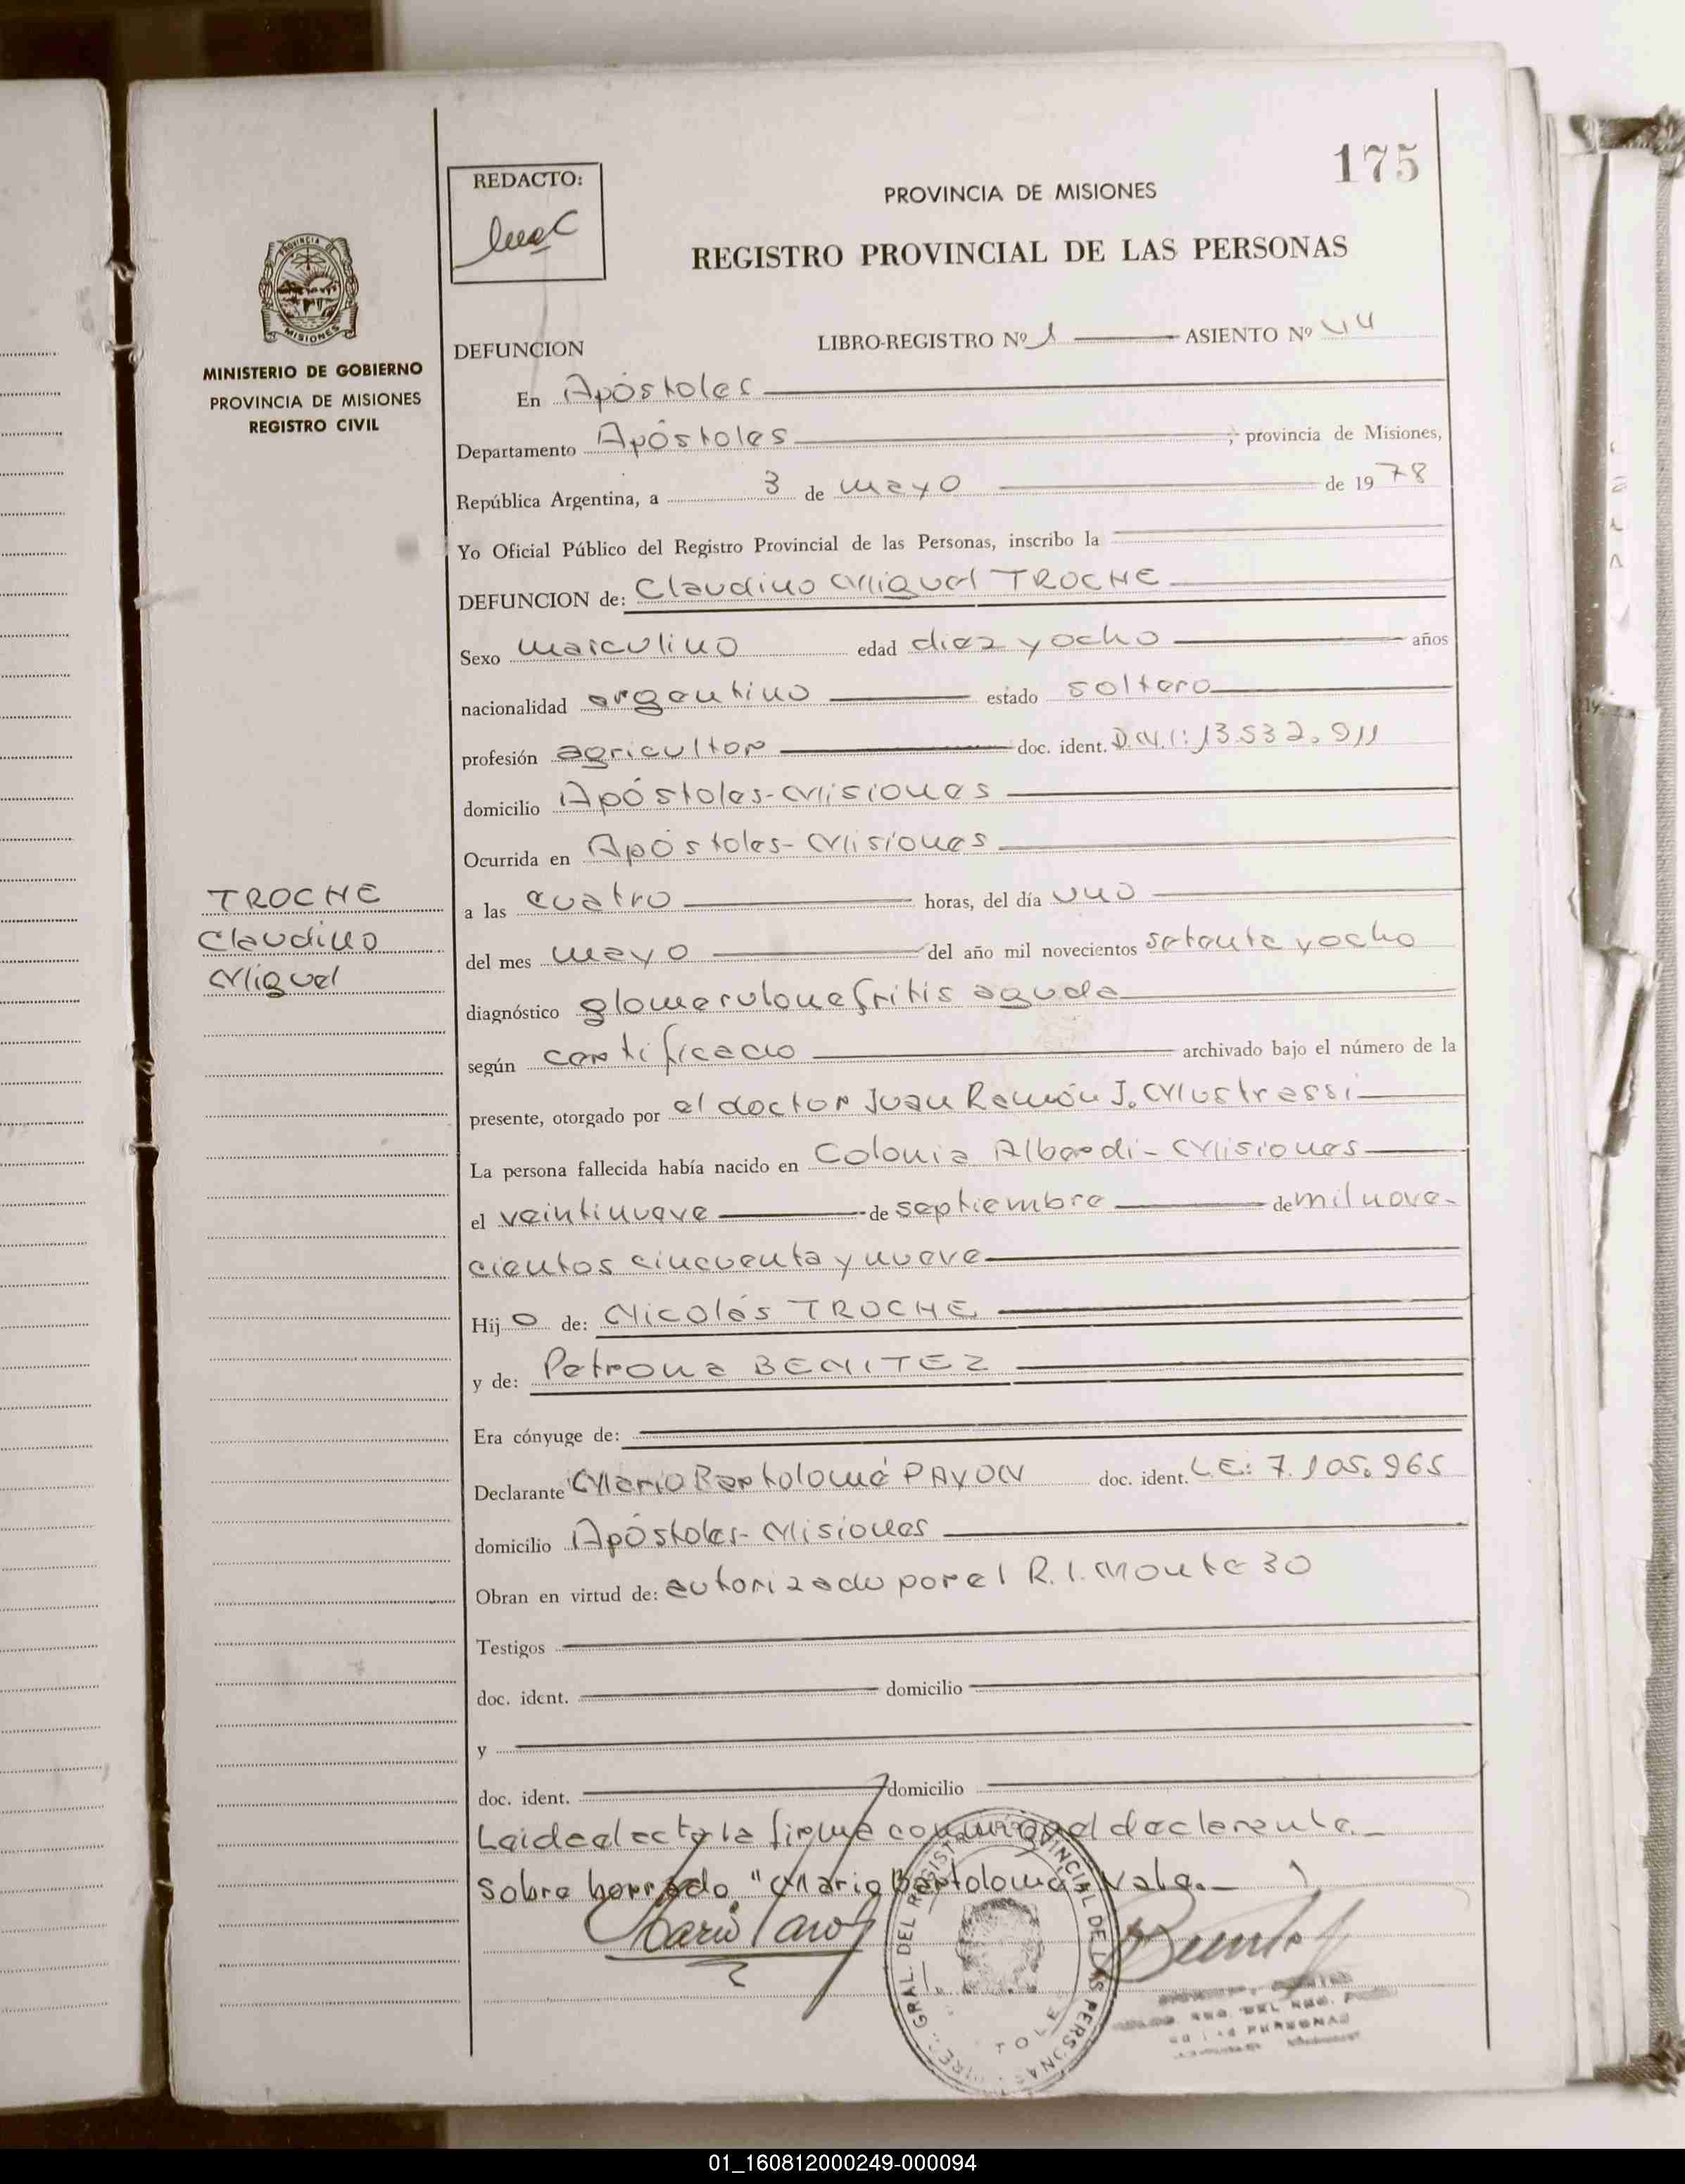 175
REDACTO:
PROVINCIA DE MISIONES
REGISTRO PROVINCIAL DE LAS PERSONAS
MISIONES
MINISTERIO DE GOBIERNO
PROVINCIA DE MISIONES
REGISTRO CIVIL
DEFUNCION LIBRO-REGISTRO Nº 1 ASIENTO Nº 44
En Apóstoles
Departamento Apóstoles ; provincia de Misiones,
República Argentina, a 3 de mayo de 1978
Yo Oficial Público del Registro Provincial de las Personas, inscribo la
DEFUNCION de: Claudino Miguel TROCHE
Sexo masculino edad diez y ocho años
nacionalidad argentino estado soltero
profesión agricultor doc. ident. D.N.I: 13.532.911
domicilio Apóstoles-Misiones
Ocurrida en Apóstoles-Misiones
a las cuatro horas, del día uno
del mes mayo del año mil novecientos setenta y ocho
diagnóstico glomerulonefritis aguda
según certificado archivado bajo el número de la
presente, otorgado por el doctor Juan Ramón J. Mustressi
La persona fallecida había nacido en Colonia Alberdi-Misiones
el veintinueve de septiembre de mil nove-
cientos cincuenta y nueve
Hijo de: Nicolás TROCHE
y de: Petrona BENITEZ
Era cónyuge de:
Declarante Mario Bartolomé PAYON doc. ident. L.E: 7.105.965
domicilio Apóstoles-Misiones
Obran en virtud de: autorizado por el R.I. Monte 30
Testigos
doc. ident. domicilio
y
doc. ident. domicilio
Leida el acta la firma conmigo el declarante.
Sobre borrado "Mario Bartolomé" Vale.
TROCHE
Claudino
Miguel
01_160812000249-000094